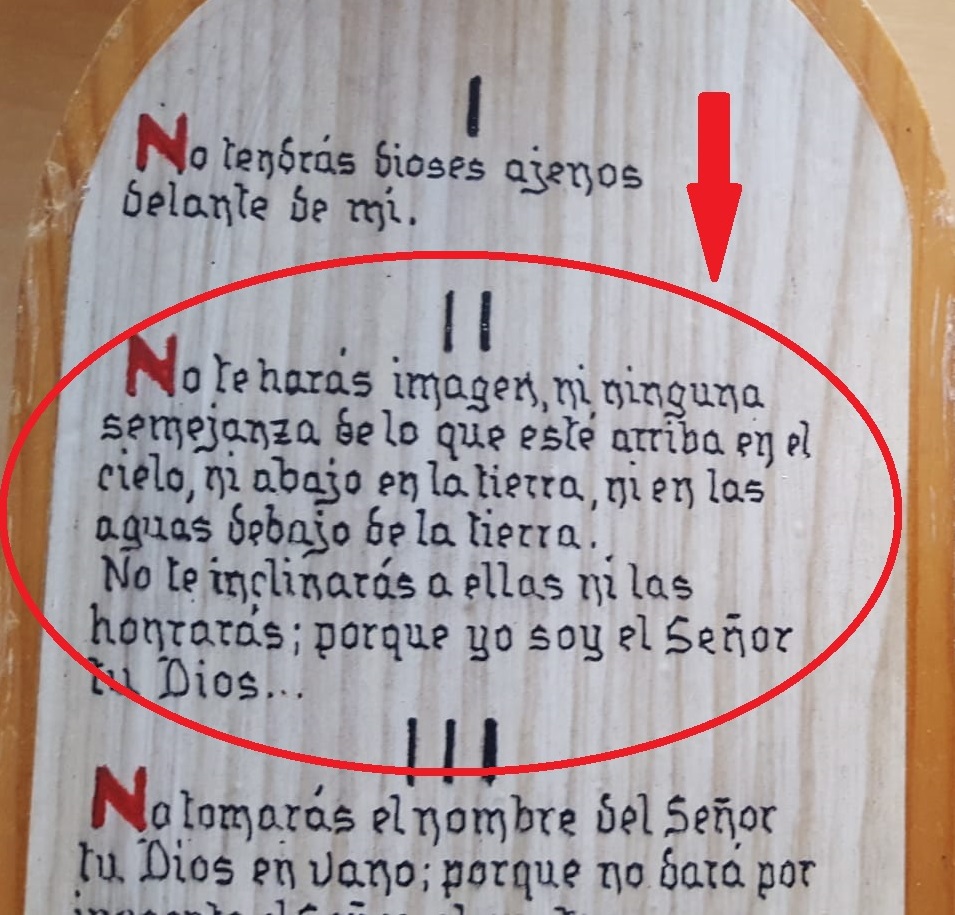 I
No tendrás dioses ajenos
delante de mí.
II
No te harás imagen, ni ninguna
semejanza de lo que esté arriba en el
cielo, ni abajo en la tierra, ni en las
aguas debajo de la tierra.
No te inclinarás a ellas ni las
honrarás; porque yo soy el Señor
tu Dios...
III
No tomarás el nombre del Señor
tu Dios en vano; porque no dará por